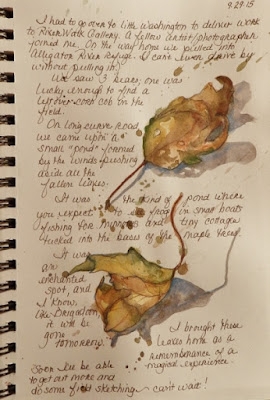 9.29.15
I had to go over to little Washington to deliver work
to RiverWalk Gallery. A fellow artist/photographer
joined me. On the way home we pulled into
Alligator River Refuge. I can't even drive by
without pulling in!
We saw 3 bears, one was
lucky enough to find a
leftover corn cob on the
field.
On long curve road
we came upon a
small "pond" formed
by the winds pushing
aside all the
fallen limbs.
It was the kind of pond where
you expect to see frogs in small boats
fishing for minnows and tiny cottages
tucked into the bases of the maple trees.
It was
an
enchanted
spot, and
I know,
like Brigadoon
it will be
gone
tomorrow.
I brought these
leaves home as a
remembrance of a
magical experience.
Soon I'll be able
to get out more and
do some field sketching - can't wait!